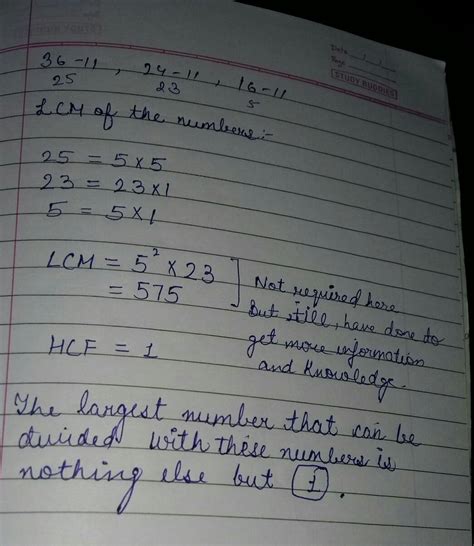 Date / /
Page
STUDY BUDDIES
36-11, 24-11, 16-11
25 23 5
LCM of the numbers:-
25 = 5×5
23 = 23×1
5 = 5×1
LCM = 5² × 23
= 575
Not required here
But still, have done to
get more information
and knowledge.
HCF = 1
The largest number that can be
divided with these numbers is
nothing else but 1.